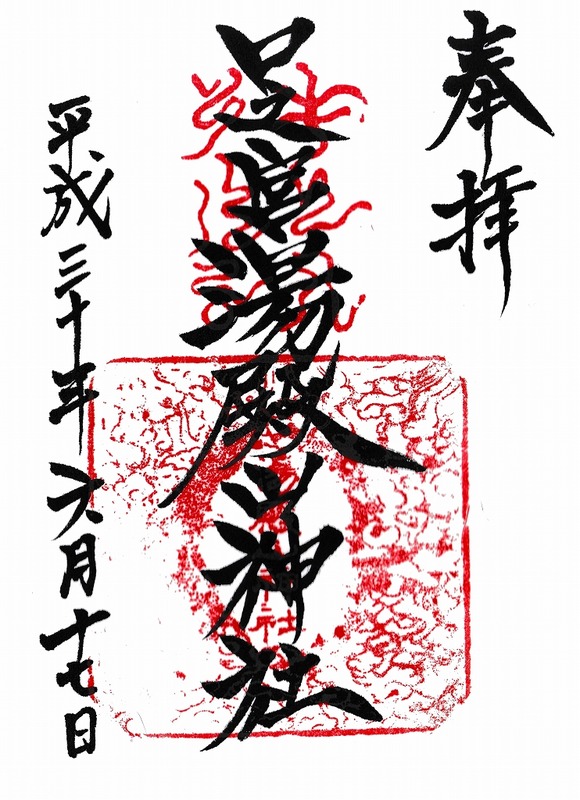 奉拝
口之宮湯殿山神社
平成三十年六月十七日